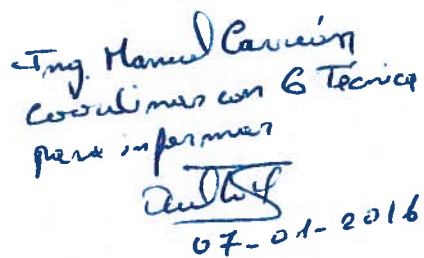 Ing. Manuel Carrión
coordinar con G Técnica
para informar
07-01-2016